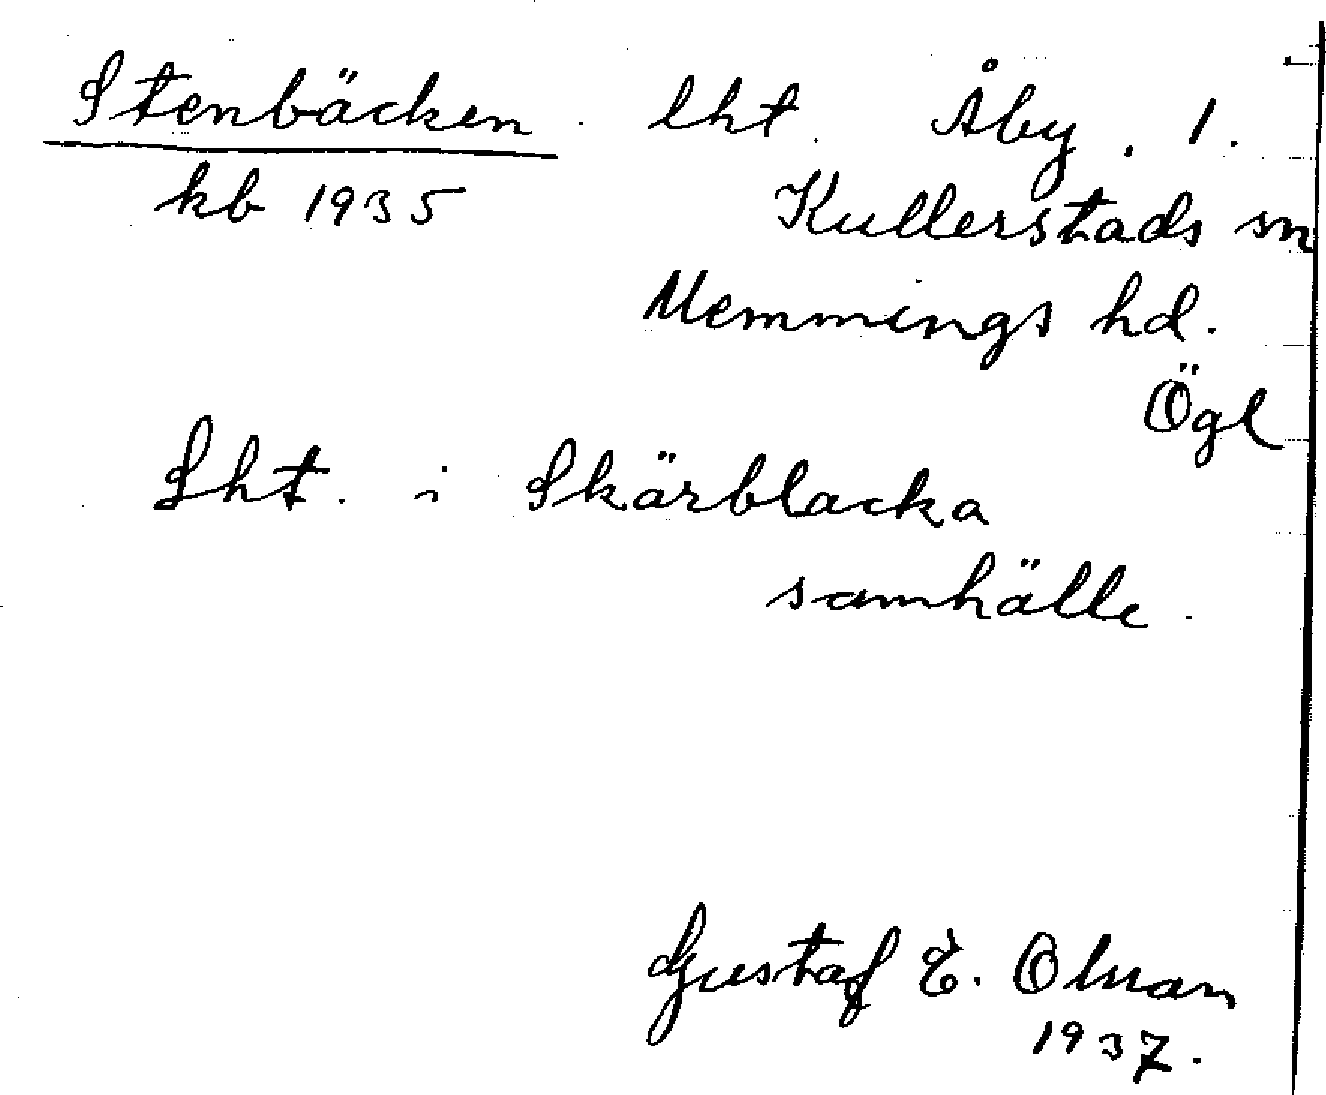 Stenbäcken. lht. Åby. 1.
kb 1935 Kullerstads sn
Memmings hd.
Ögl
Lht. i Skärblacka
samhälle.
Gustaf E. Olnan
1937.